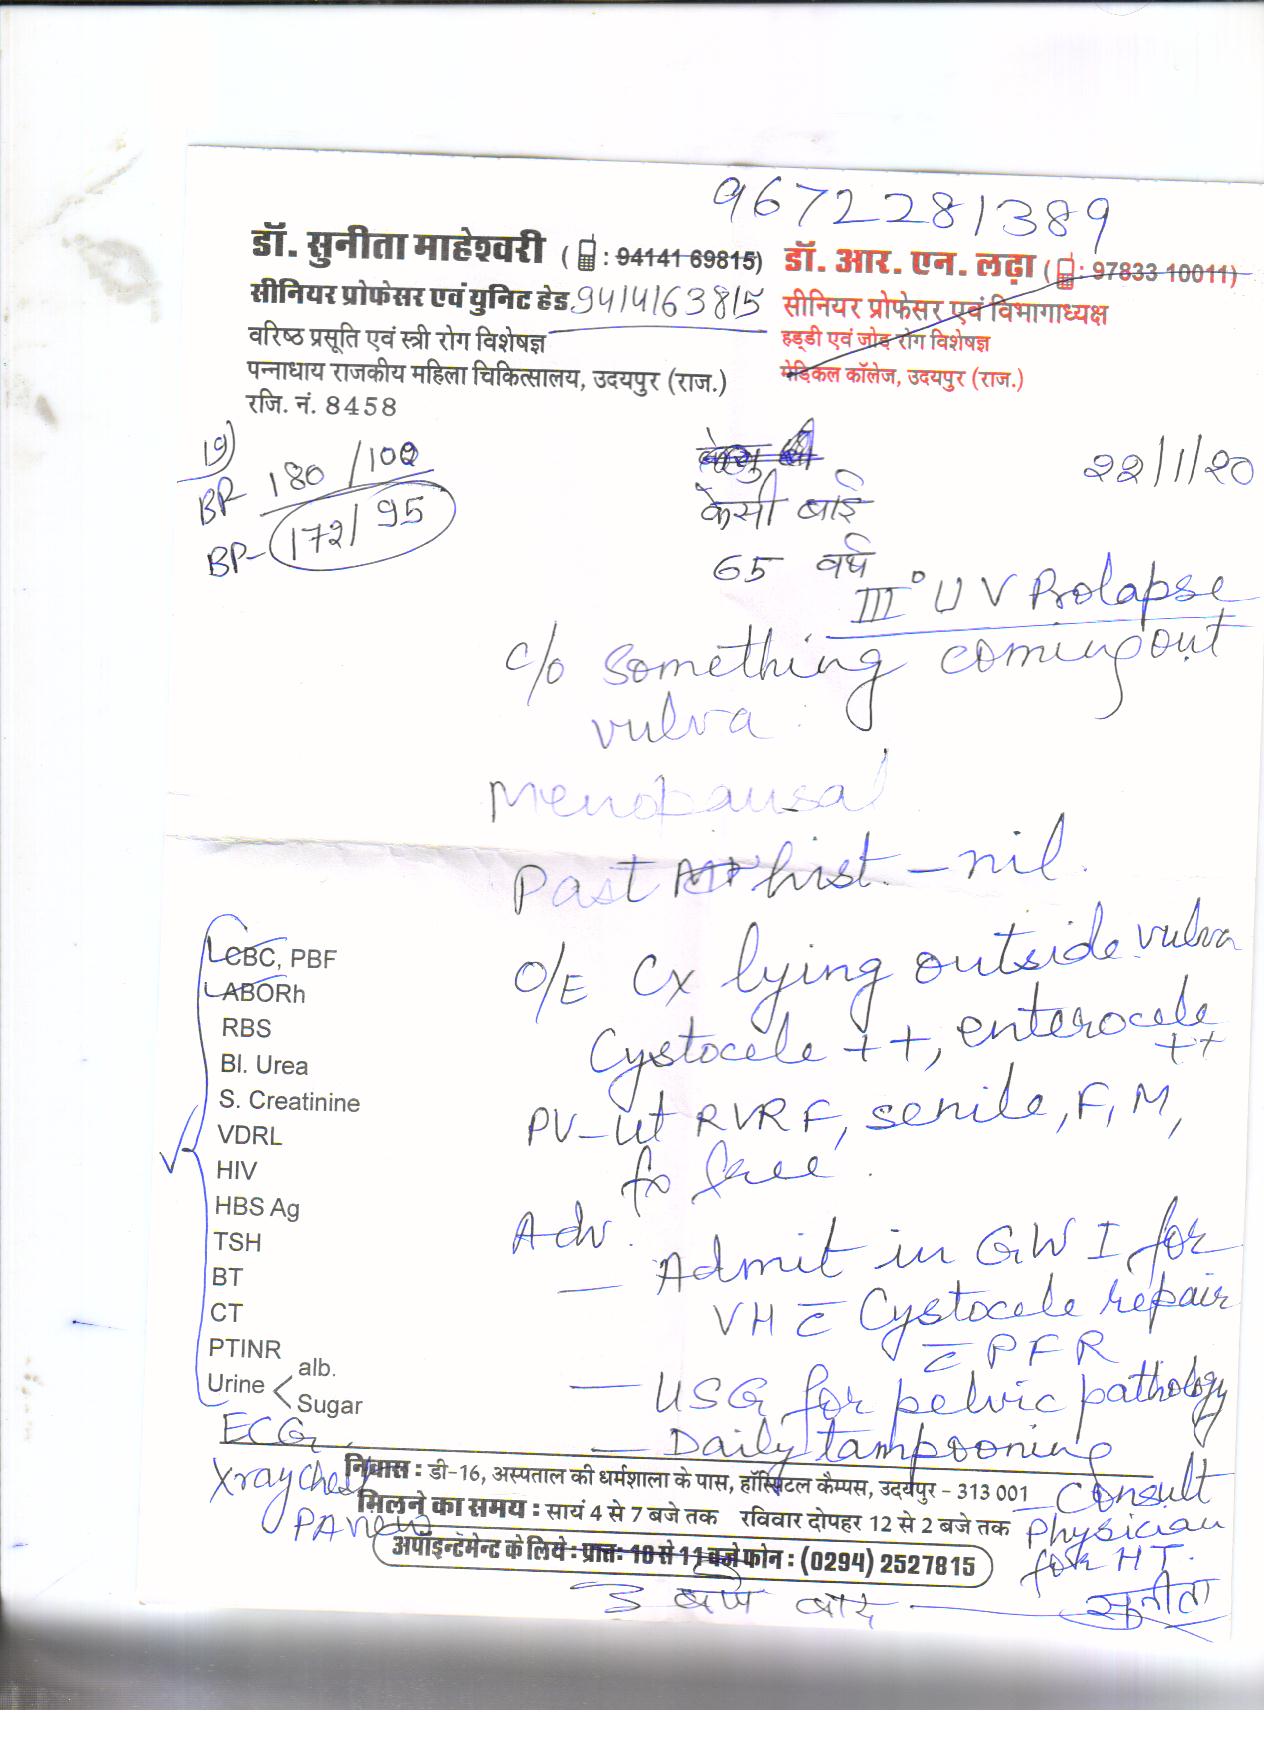 9672281389
डॉ. सुनीता माहेश्वरी (: 94141 69815)
सीनियर प्रोफेसर एवं युनिट हेड 9414163815
वरिष्ठ प्रसूति एवं स्त्री रोग विशेषज्ञ
पन्नाधाय राजकीय महिला चिकित्सालय, उदयपुर (राज.)
रजि. नं. 8458
डॉ. आर. एन. लढ़ा (: 97833 10011)
सीनियर प्रोफेसर एवं विभागाध्यक्ष
हड्डी एवं जोड़ रोग विशेषज्ञ
मेडिकल कॉलेज, उदयपुर (राज.)
BP 180/102
BP- 172/95
22/1/20
केसी बाई
65 वर्ष
III° U V Prolapse
c/o something coming out
vulva
Menopausal
Past hist. - nil.
O/E Cx lying outside vulva
Cystocele ++, enterocele
++
PV - Ut RVRF, senile, F, M,
fx free.
Adv.
- Admit in GW I for
VH c̅ Cystocele repair
c̅ PFR
- USG for pelvic pathology
- Daily tampooning
- Consult
Physician
for HT.
CBC, PBF
ABORh
RBS
Bl. Urea
S. Creatinine
VDRL
HIV
HBS Ag
TSH
BT
CT
PTINR
Urine < alb.
Sugar
ECG
Xray chest
PA view
निवास : डी-16, अस्पताल की धर्मशाला के पास, हॉस्पिटल कैम्पस, उदयपुर - 313 001
मिलने का समय : सायं 4 से 7 बजे तक रविवार दोपहर 12 से 2 बजे तक
अपॉइन्टमेन्ट के लिये : प्रातः 10 से 11 बजे फोन : (0294) 2527815
3 बजे बाद
सुनीता